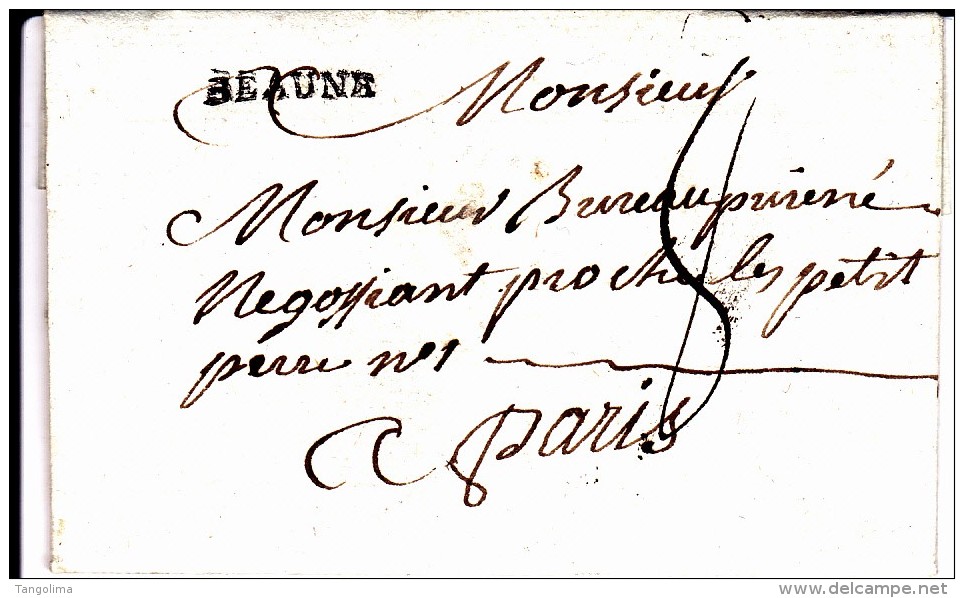 BEAUNE
Monsieur
Monsieur Bureau
Negossiant proche les petit
perre n° 1
A paris
8
Tangolima
www.delcampe.net